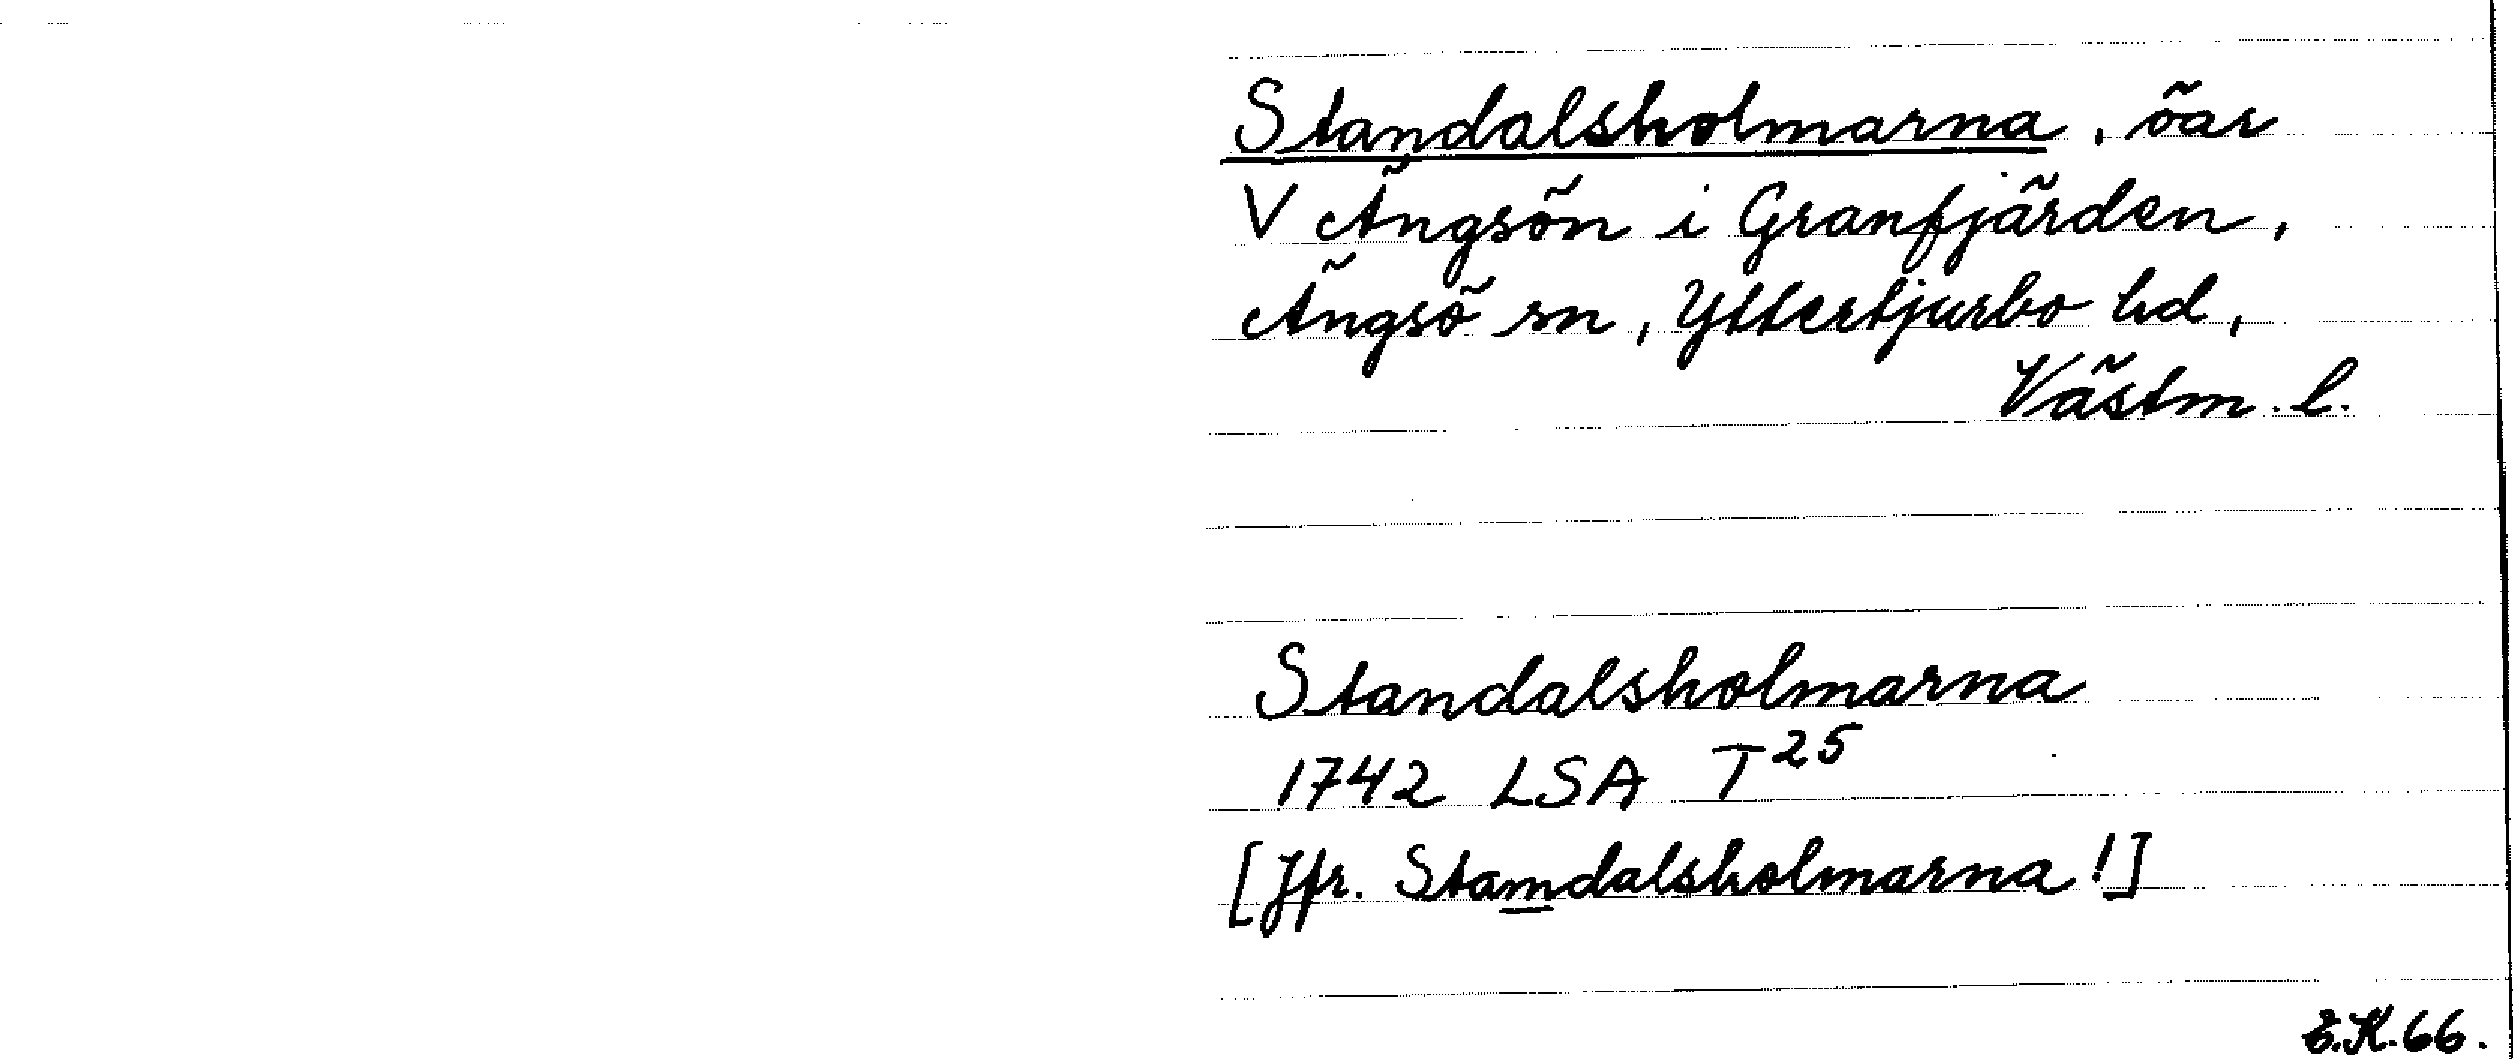 Standalsholmarna, öar
V Ängsön i Granfjärden,
Ängsö sn, Yttertjurbo hd,
Västm. l.
Standalsholmarna
1742 LSA T 25
[Jfr. Stamdalsholmarna!]
E.K.66.